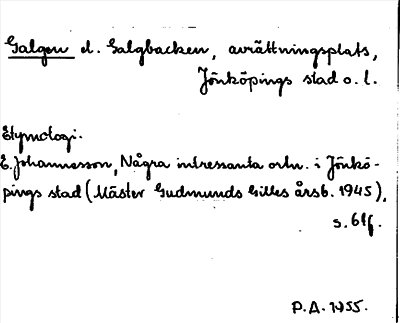 Galgen el. Galgbacken, avrättningsplats,
Jönköpings stad o. l.
Etymologi.
E. Johannesson, Några intressanta ortn. i Jönkö-
pings stad (Mäster Gudmunds Gilles årsb. 1945),
s. 61f.
P.A. 1955.